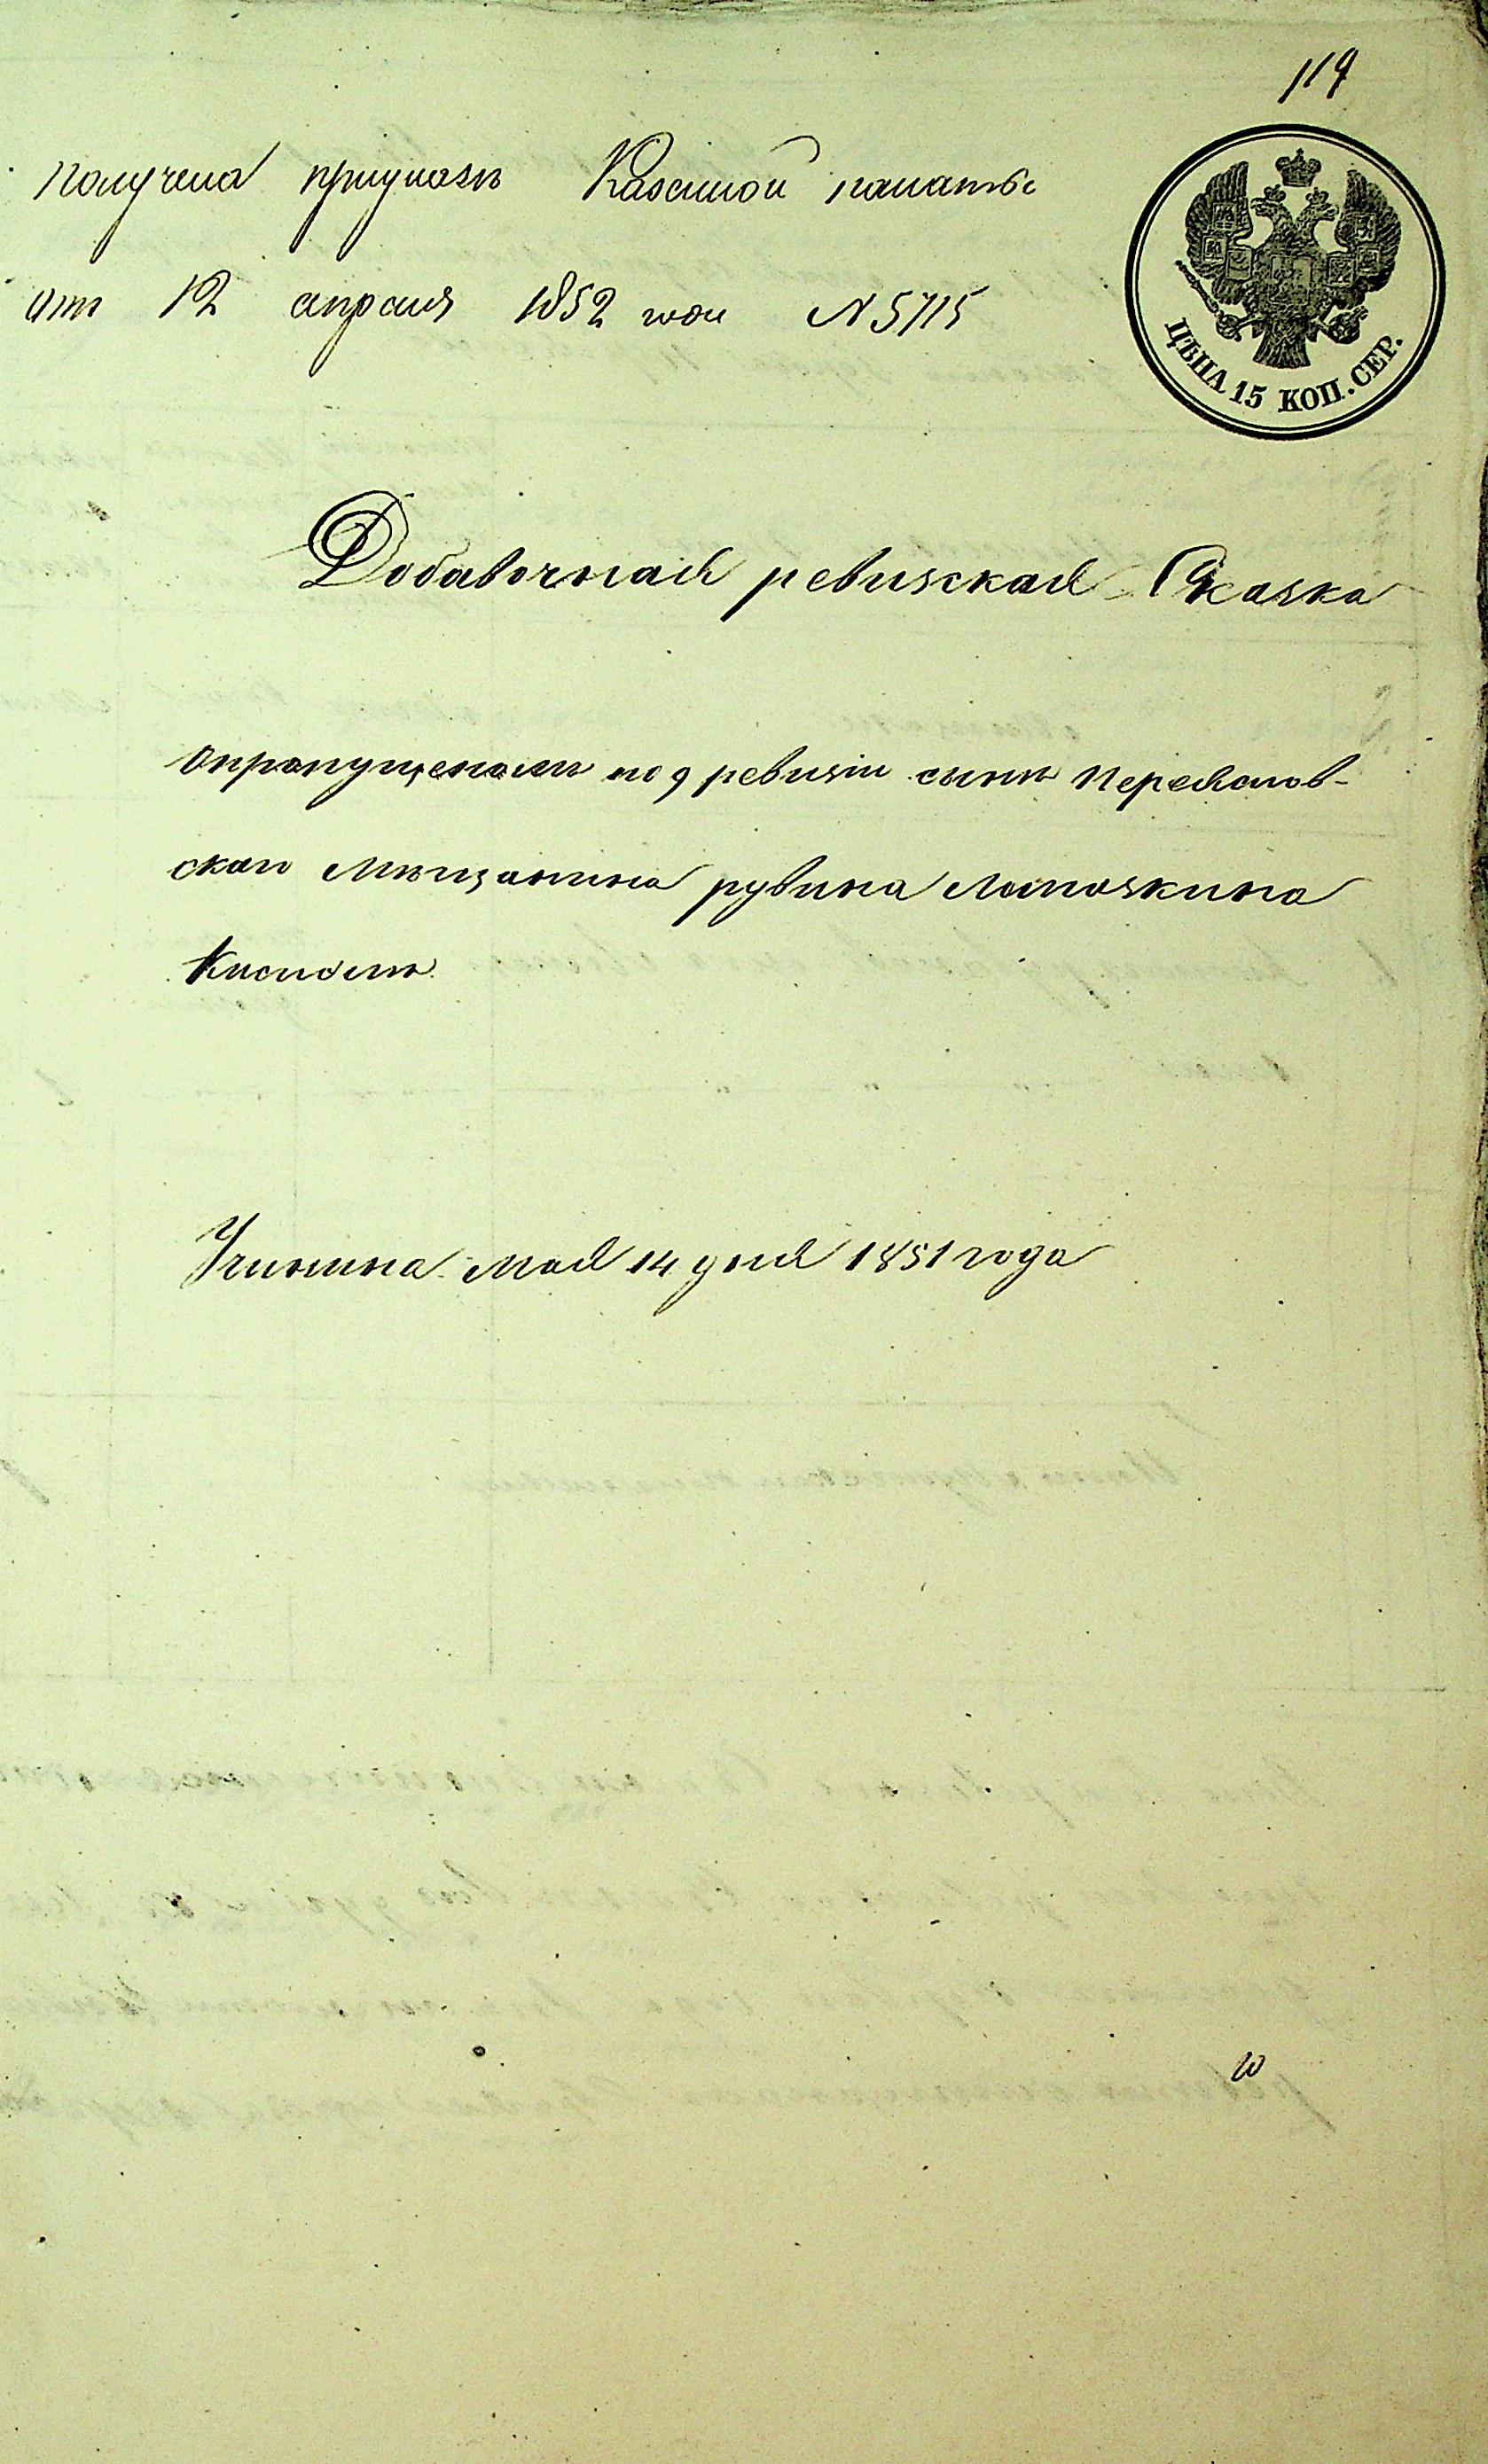 119
Получена приуказѣ Казенной палаты
отъ 12 апреля 1852 года N 5715
ЦѢНА 15 КОП. СЕР.
Добавочная ревизская Сказка
Опропущеномъ по 9 ревизіи сынѣ Переяслов-
скаго Мѣщанина рувина
Учинина Мая 14 дня 1851 года